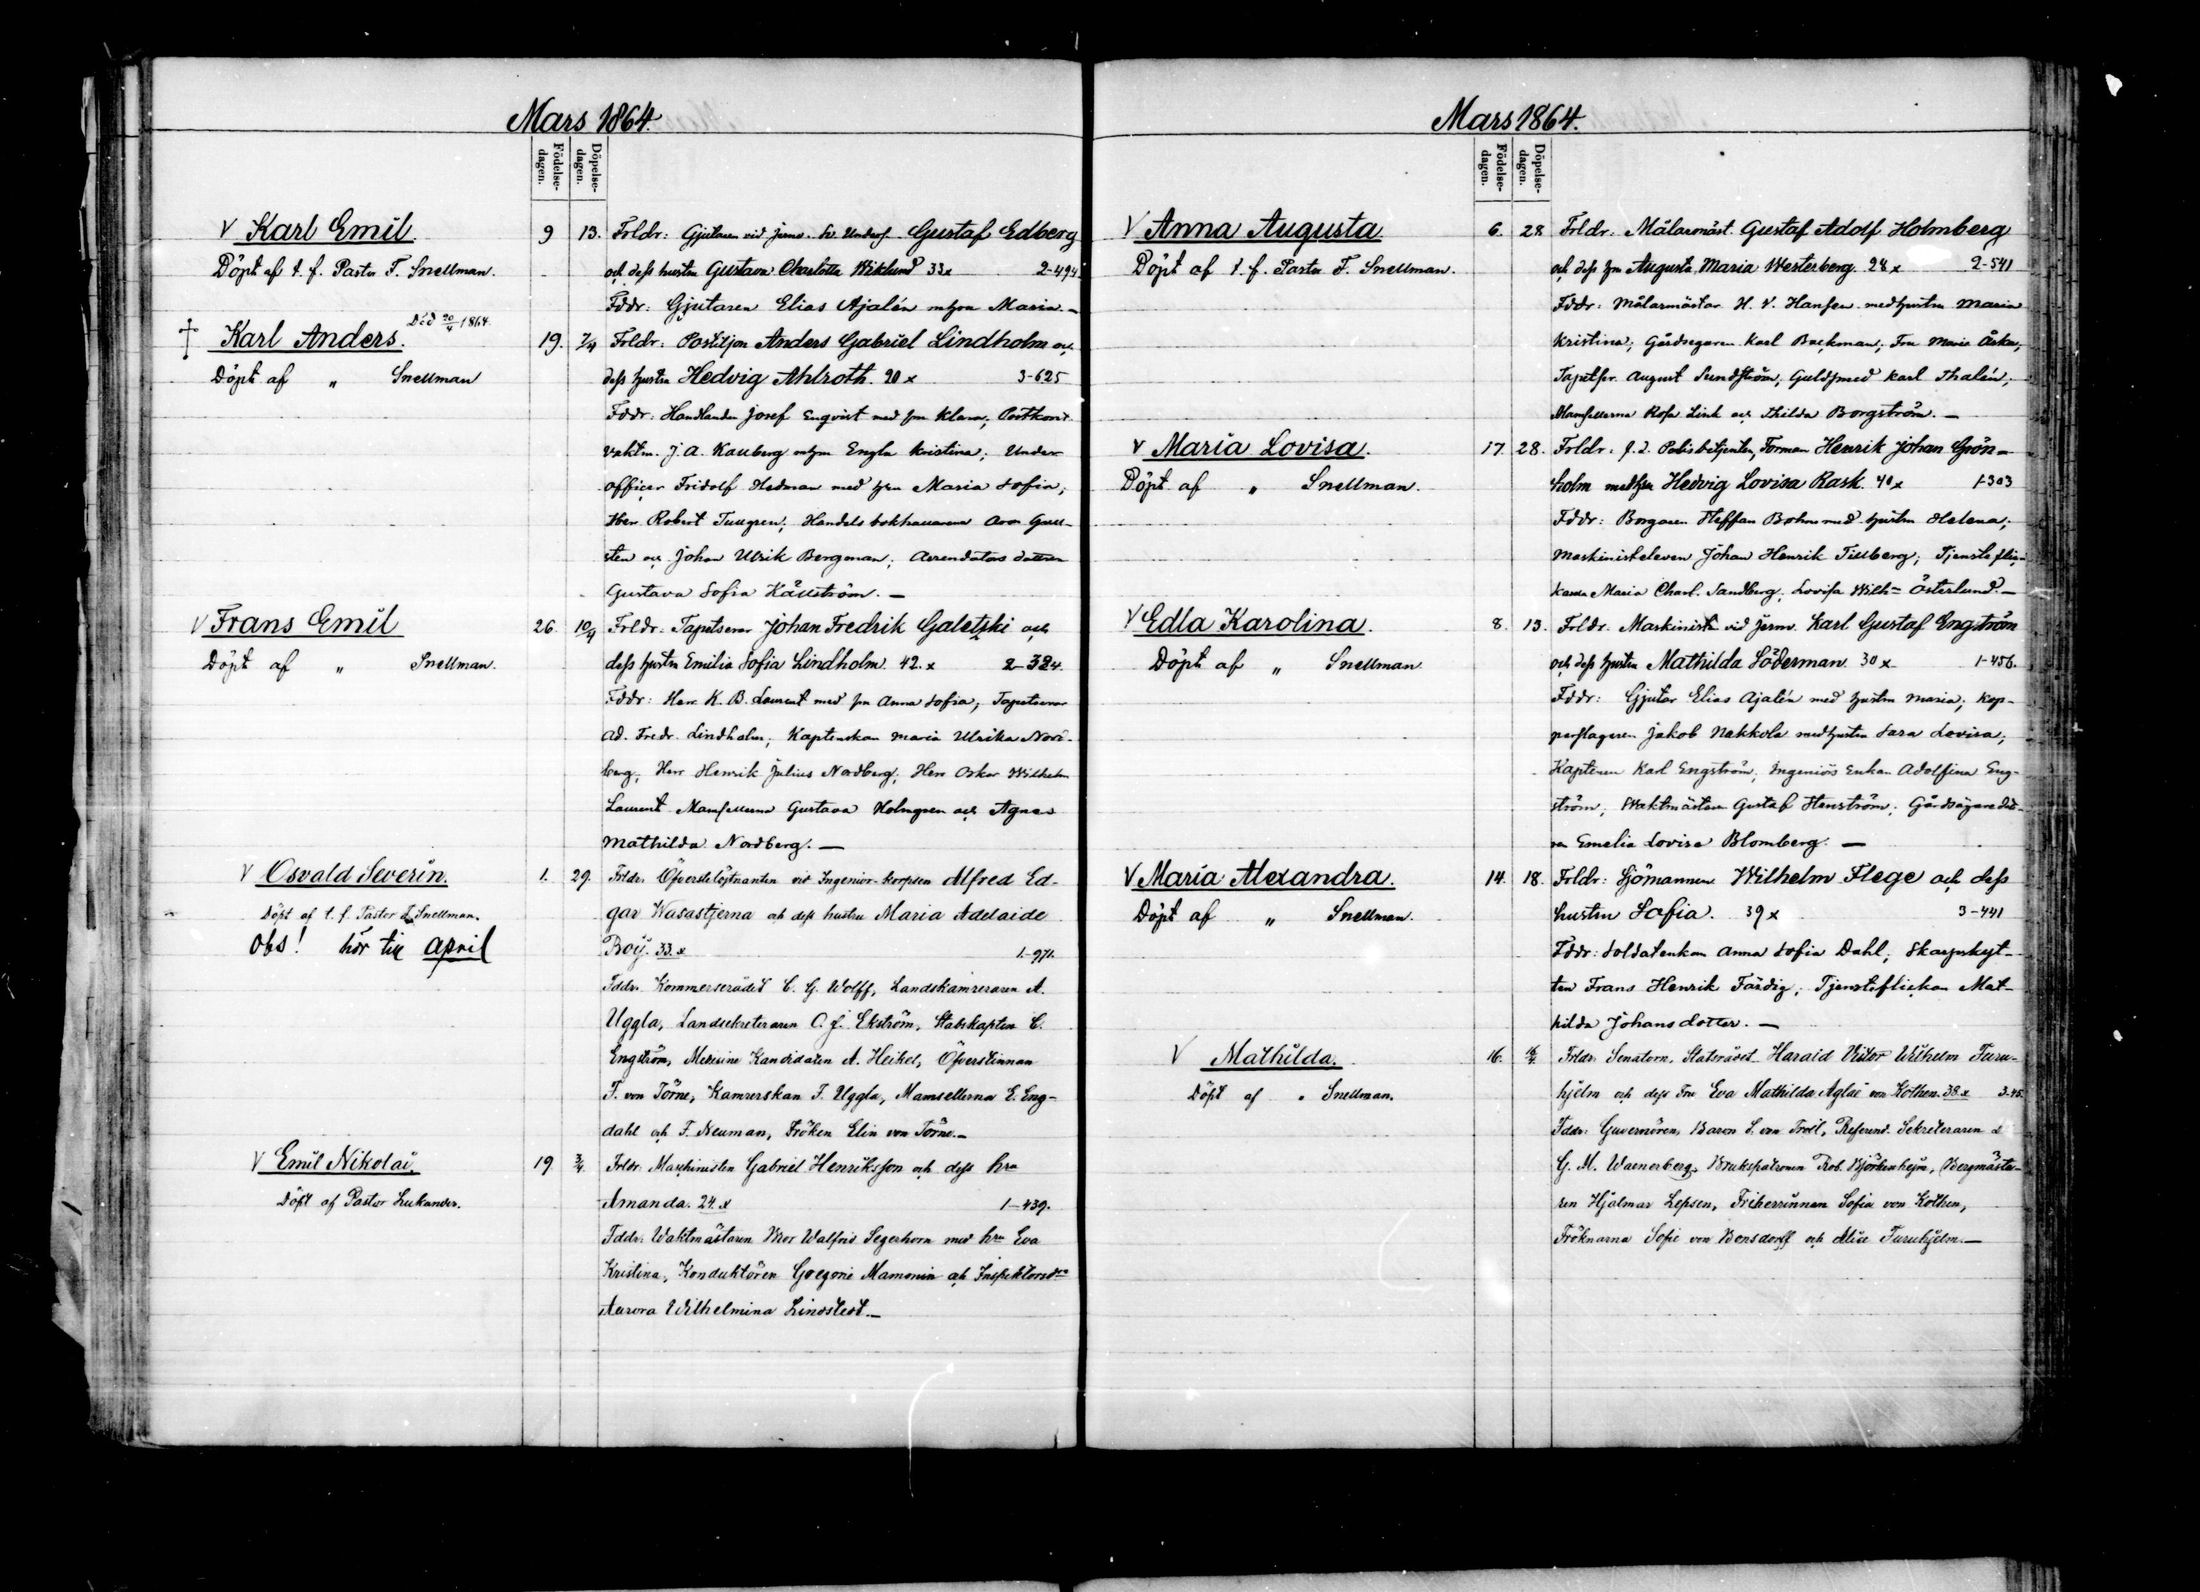 Mars 1864.
Födelse-
dagen.
Döpelse-
dagen.
V Karl Emil.
Döpt af t. f. Pastor F. Snellman.
9 13. Frldr: Gjutaren vid jernv. Gustaf Edberg
och dess hustru Gustava Charlotta Wiklund 33x 2-494
Fddr: Gjutaren Elias Ajalén m hru Maria.–
Död 20/4 1864.
† Karl Anders.
Döpt af „ Snellman
19. 7/4 Frldr: Postiljon Anders Gabriel Lindholm och
dess hustru Hedvig Ahlroth. 20 x 3-625
Fddr: Handlanden Josef Enqvist med hru Klara; Postkont.
vaktm. J. A. Kauberg m hru Engla Kristina; Under
officer Fridolf Hedman med hru Maria Sofia;
Herr Robert Tuugren; Handels bokhallarena Aron
och Johan Ulrik Bergman; Arrendators dottren
Gustava Sofia Källström.–
V Frans Emil
Döpt af „ Snellman.
26. 10/4 Frldr: Tapetserar Johan Fredrik Galetzki och
dess hustru Emilia Sofia Lindholm. 42. x 2-324.
Fddr: Herr K. B. Laurent med fru Anna Sofia; Tapetserar
Ad. Fredr. Lindholm; Kaptenskan Maria Ulrika Nord-
berg; Herr Henrik Julius Nordberg; Herr Oskar Wilhelm
Laurent Mamsellerna Gustava Holmgren och Agnes
Mathilda Nordberg.–
V Osvald Severin.
Döpt af t. f. Pastor F. Snellman.
Obs! hör till april
1. 29. Frldr. Öfverstelöjtnanten vid Ingeniör-korpsen Alfred Ed-
gar Wasastjerna och dess hustru Maria Adelaide
Boij. 33. x 1-971.
Fddr. Kommerserådet C. G. Wolff, Landskamreraren A.
Uggla, Landsekreteraren O. J. Ekström, Stabskapten C.
Engström, Medicine Kandidaten A. Heikel, Öfverstinnan
F. von Törne, Kamrerskan F. Uggla, Mamsellerna E. Eng-
dahl och F. Neuman, Fröken Elin von Törne.–
V Emil Nikolai.
Döpt af Pastor Lukander.
19. 3/4. Frldr: Maschinisten Gabriel Henriksson och dess hru
Amanda. 24. x 1-439.
Fddr: Waktmästaren Walfrid Segerhorn med hru Eva
Kristina, Konduktören Gregori Mamonin och Inspektorsdrn
Aurora Wilhelmina Lindstedt.–
Mars 1864.
Födelse-
dagen.
Döpelse-
dagen.
V Anna Augusta
Döpt af t. f. Pastor F. Snellman.
6. 28 Frldr. Målarmäst. Gustaf Adolf Holmberg
och dess hru Augusta Maria Westerberg. 28 x 2-541
Fddr: Målarmästar H. V. Hansen med hustru Maria
Kristina; Gårdsegaren Karl Backman; Fru Maria
Tapetser. August Sundström; Guldsmed Karl Thalén;
Mamsellerna Rosa Link och Thilda Borgström.–
V Maria Lovisa.
Döpt af „ Snellman.
17. 28. Frldr: f. d. Polisbetjenten, Forman Henrik Johan Grön-
holm med hru Hedvig Lovisa Rask. 40 x 1-303
Fddr: Borgaren Steffan Bohm med hustru Helena;
Maskinisteleven Johan Henrik Tillberg; Tjenstefli-
Maria Charl. Sandberg, Lovisa Wilh= Österlund.–
V Edla Karolina.
Döpt af „ Snellman
8. 13. Frldr. Maskinist vid jernv. Karl Gustaf Engström
och dess hustru Mathilda Söderman 30 x 1-456.
Fddr: Gjutar Elias Ajalén med hustru Maria; Kop-
parslagaren Jakob Nakkola med hustru Sara Lovisa;
Kaptenen Karl Engström; Ingeniörs Enkan Adolfina Eng-
ström; Waktmästaren Gustaf Stenström; Gårdsägare dot-
ren Emelia Lovisa Blomberg.–
V Maria Alexandra.
Döpt af „ Snellman.
14. 18. Frldr: Sjömannen Wilhelm Flege och dess
hustru Sofia. 39 x 3-441
Fddr: Soldatenkan Anna Sofia Dahl, Skarpskyt-
ten Frans Henrik Färdig; Tjensteflickan Mat-
hilda Johansdotter.–
V Mathilda.
Döpt af „ Snellman.
16. Frldr: Senatorn, Statsrådet Harald Victor Wilhelm Furu-
hjelm och dess Fru Eva Mathilda Aglaé von Kothen. 38. x 3-45.
Fddr: Guvernören, Baron S. von Troil, Referend. Sekreteraren
G. M. Waenerberg, Brukspatronen Rob. Björkenheim, Bergmästa-
ren Hjalmar Lepsen, Friherrinnan Sofia von Kothen,
Fröknarna Sofie von Bonsdorff och Alice Furuhjelm.–